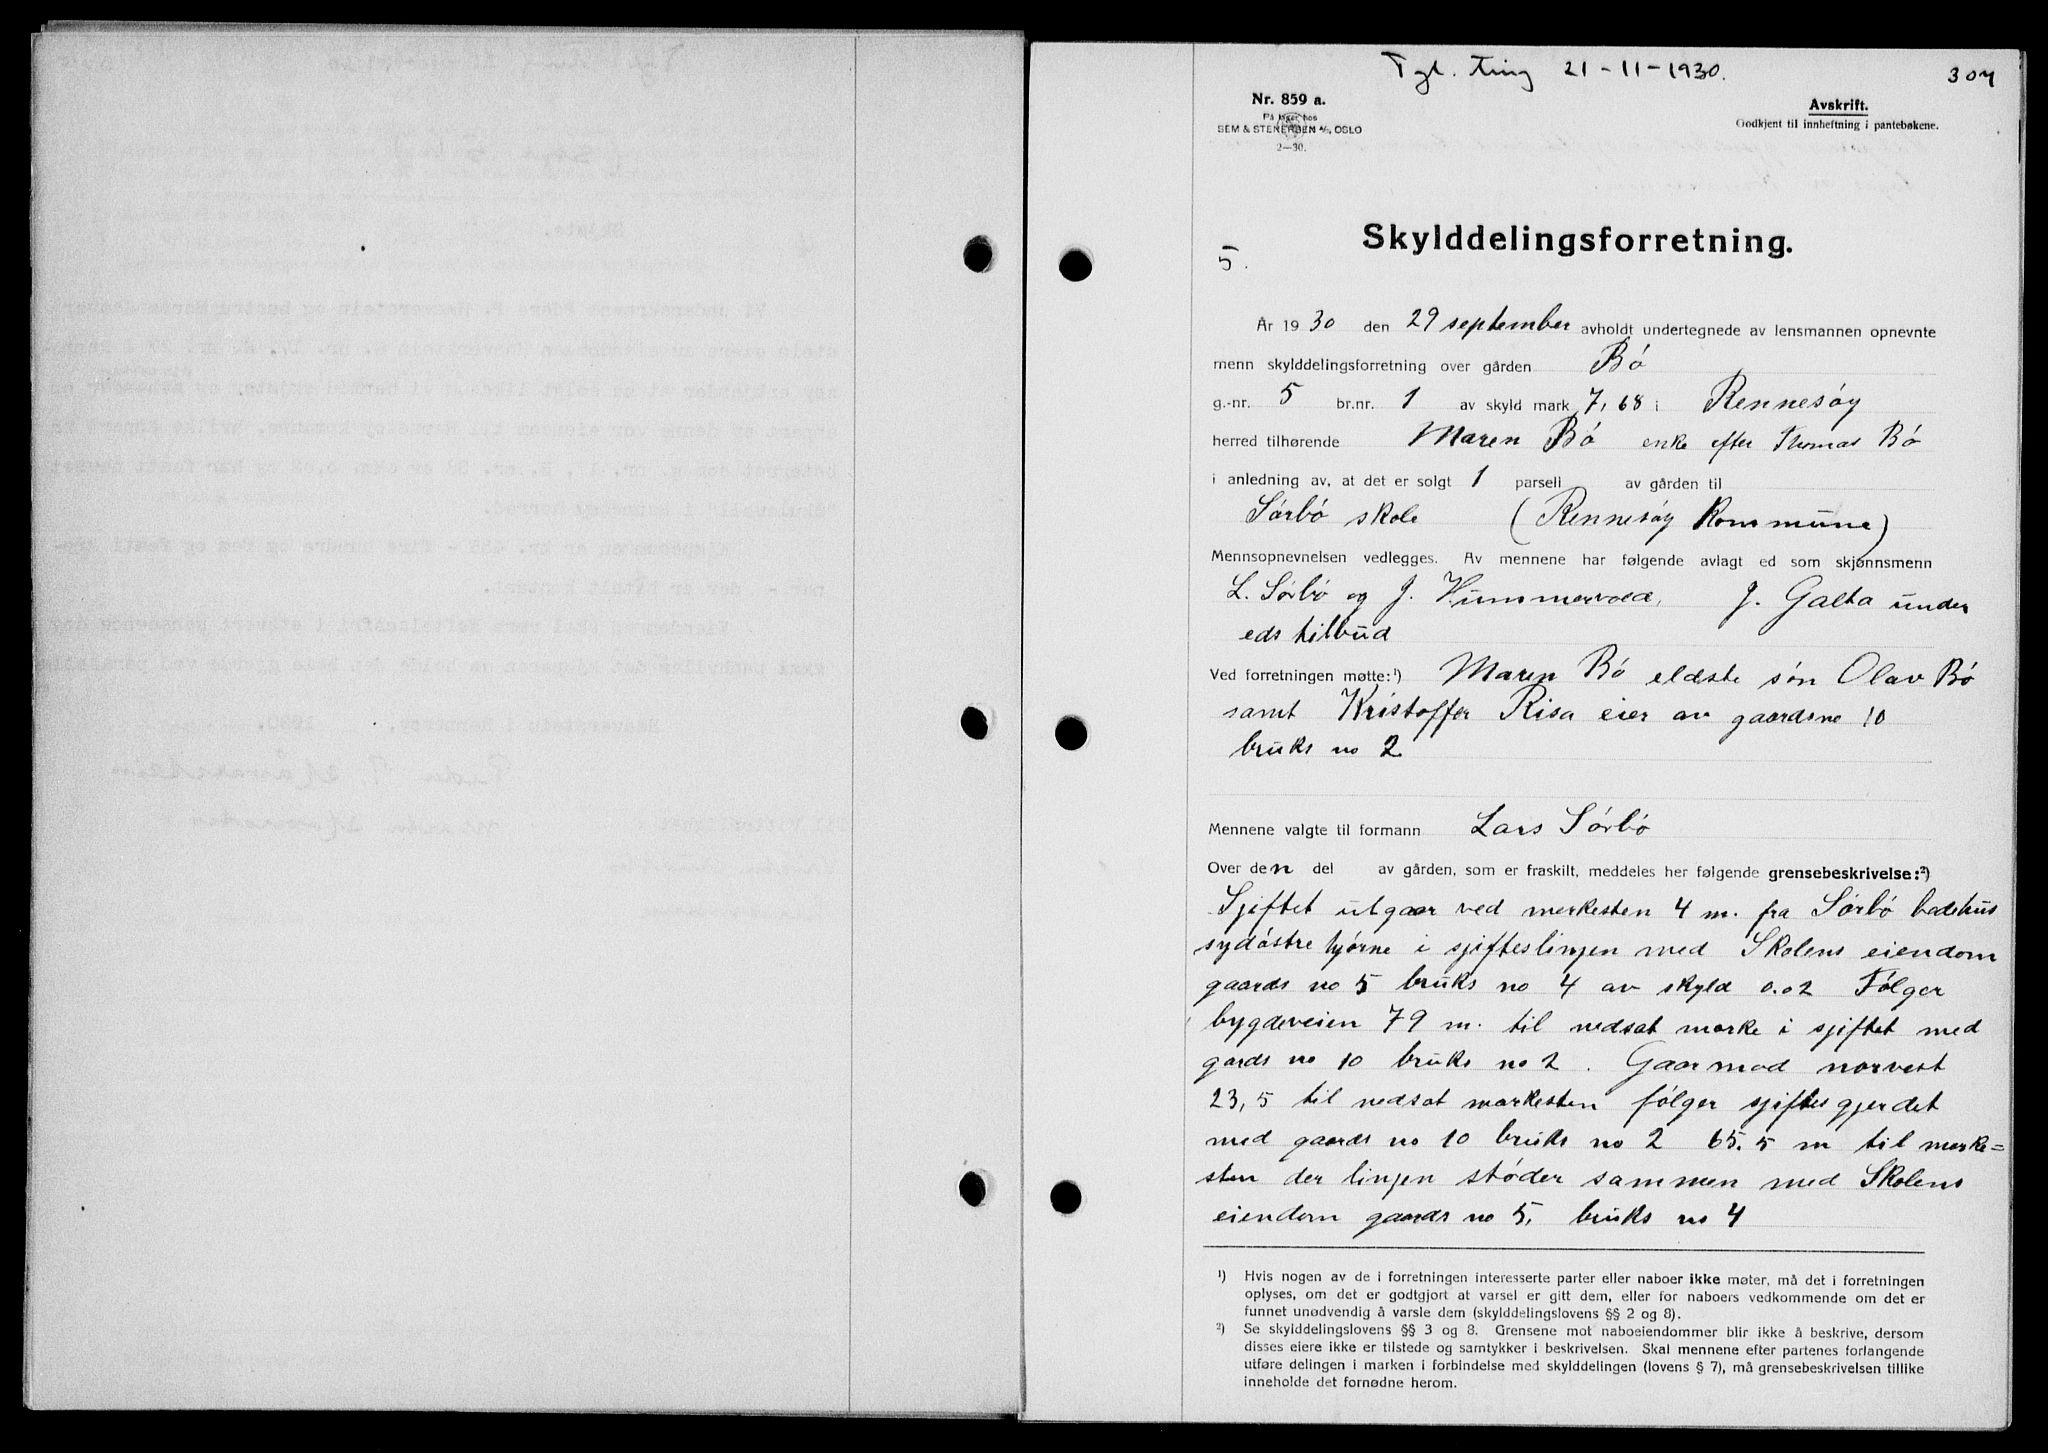 Tgl. ting 21-11-1930.
307
Nr. 859 a.
På lager hos
SEM & STENERSEN A/S, OSLO
2—30.
Avskrift.
Godkjent til innheftning i pantebøkene.
Skylddelingsforretning.
5.
År 1930 den 29 september avholdt undertegnede av lensmannen opnevnte
menn skylddelingsforretning over gården Bö
g.-nr. 5 br.nr. 1 av skyld mark 7,68 i Rennesöy
herred tilhørende Maren Bö enke efter Thomas Bö
i anledning av, at det er solgt 1 parsell av gården til
Sörbö skole (Rennesöy Kommune)
Mennsopnevnelsen vedlegges. Av mennene har følgende avlagt ed som skjønnsmenn
L. Sörbö og J. Hummervold, J. Galta under
eds tilbud
Ved forretningen møtte:¹) Maren Bö eldste sön Olav Bö
samt Kristoffer Risa eier av gaardsno 10
bruks no 2
Mennene valgte til formann Lars Sörbö
Over den del av gården, som er fraskilt, meddeles her følgende grensebeskrivelse:²)
Sjiftet utgaar ved merkesten 4 m. fra Sörbö bedehus
sydöstre hjörne i sjifteslinjen med Skolens eiendom
gaards no 5 bruks no 4 av skyld 0.02 Fölger
bygdeveien 79 m. til nedsat merke i sjiftet med
gards no 10 bruks no 2. Gaar mod norvest
23,5 til nedsat merkesten fölger sjiftesgjerdet
med gaards no 10 bruks no 2 65.5 m til merke=
sten der linjen stöder sammen med Skolens
eiendom gaards no 5, bruks no 4
¹) Hvis nogen av de i forretningen interesserte parter eller naboer ikke møter, må det i forretningen
oplyses, om det er godtgjort at varsel er gitt dem, eller for naboers vedkommende om det er
funnet unødvendig å varsle dem (skylddelingslovens §§ 2 og 8).
²) Se skylddelingslovens §§ 3 og 8. Grensene mot naboeiendommer blir ikke å beskrive, dersom
disses eiere ikke er tilstede og samtykker i beskrivelsen. Skal mennene efter partenes forlangende
utføre delingen i marken i forbindelse med skylddelingen (lovens § 7), må grensebeskrivelsen tillike
inneholde det fornødne herom.